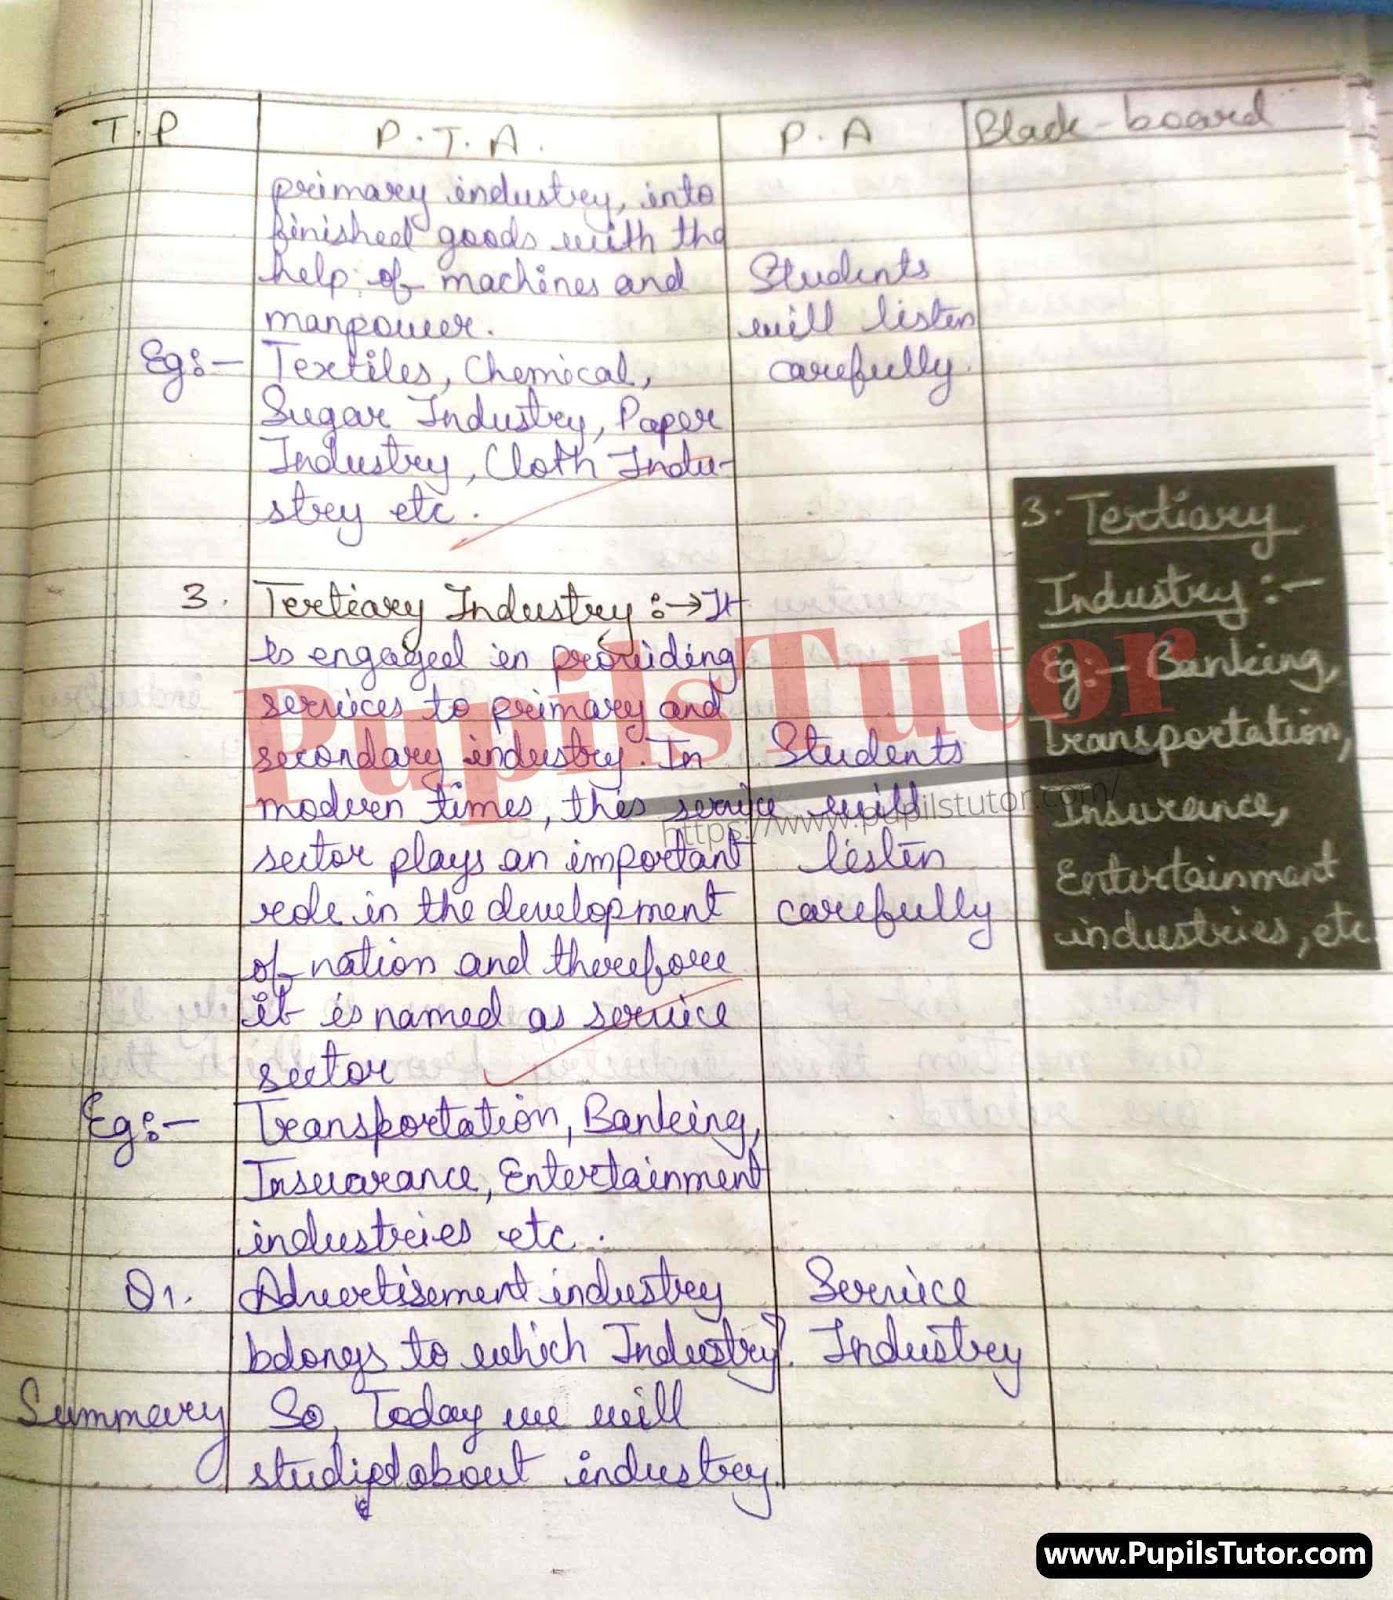 T.P P.T.A. P.A Black-board
primary industry, into
finished goods with the
help of machines and
manpower.
Students
will listen
carefully.
Eg:- Textiles, Chemical,
Sugar Industry, Paper
Industry, Cloth Indu-
stry etc.
3. Tertiary Industry :→ It
is engaged in providing
services to primary and
secondary industry. In
modern times, this service
sector plays an important
role in the development
of nation and therefore
it is named as service
sector
Students
will
listen
carefully
3. Tertiary
Industry :-
Eg:- Banking,
Transportation,
Insurance,
Entertainment
industries, etc
Eg:- Transportation, Banking,
Insuarance, Entertainment
industries etc.
Q1. Advertisement industry
belongs to which Industry?
Service
Industry
Summary So, Today we will
studied about industry.
PupilsTutor
https://www.pupilstutor.com/
www.PupilsTutor.com